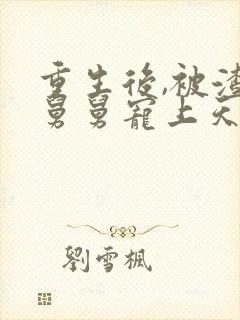 重生後,被渣
舅舅寵上天
劉雪楓